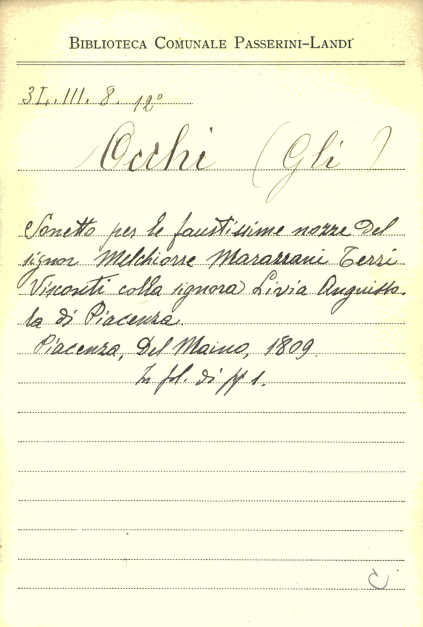 BIBLIOTECA COMUNALE PASSERINI-LANDI
3L.III.8.12°
Occhi (Gli)
Sonetto per le faustissime nozze del
signor Melchiorre Marazzani Terzi
Visconti colla signora Livia Anguisso-
la di Piacenza.
Piacenza, Del Maino, 1809.
In fol. di pp 1.